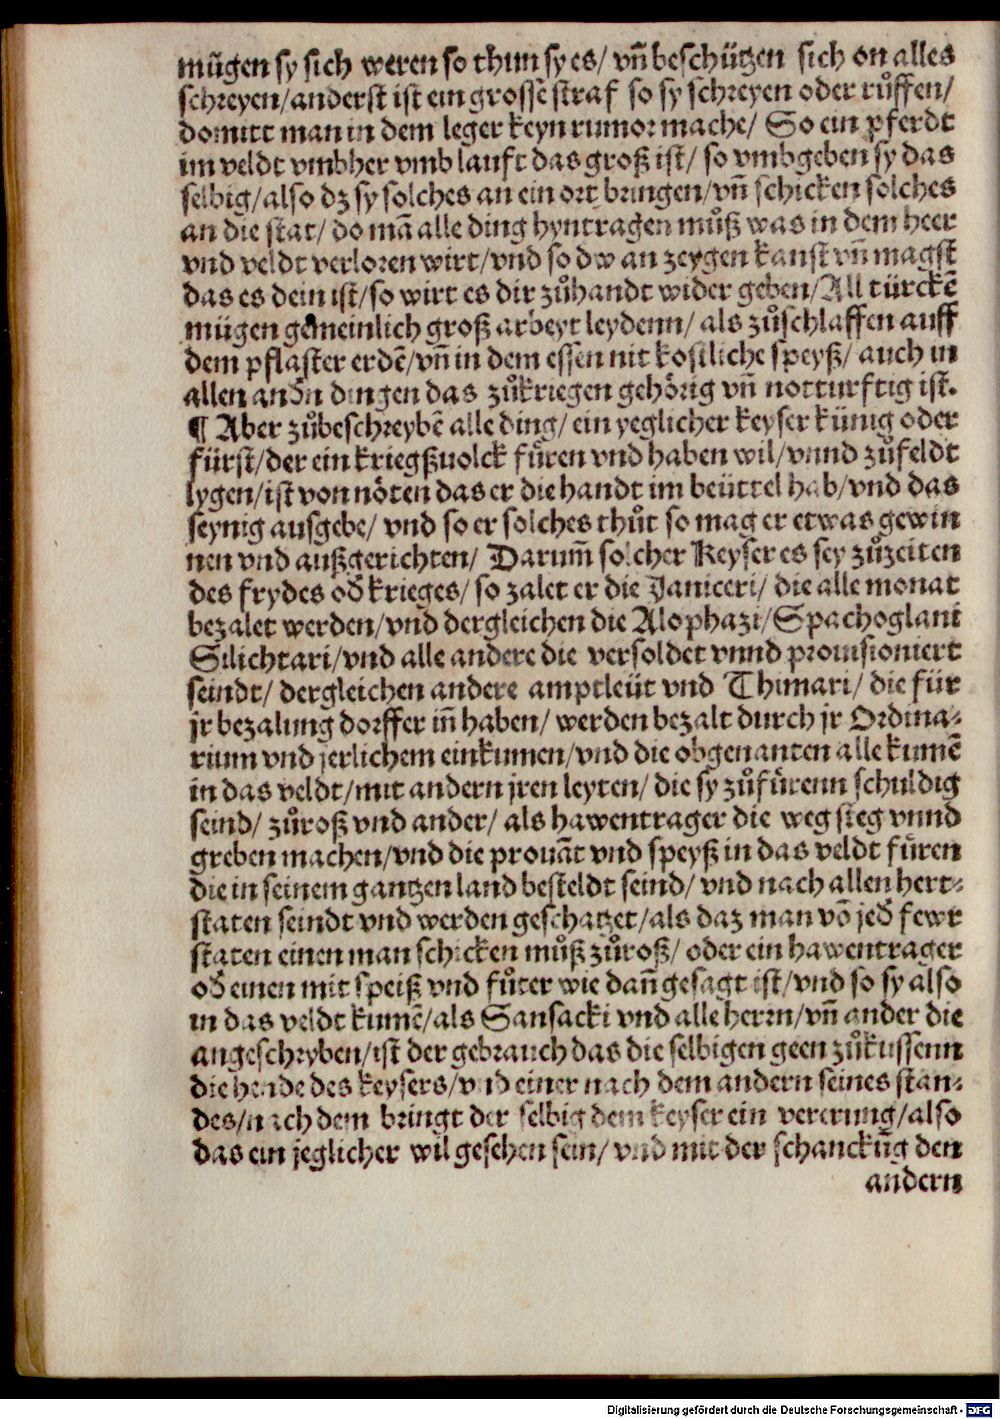 mügen sy sich weren so thun sy es/ vñ beschützen sich on alles
schreyen/anderst ist ein grossẽ straf so sy schreyen oder růffen/
domitt man in dem leger keyn rumor mache/ So ein pferdt
im veldt vmbher vmb lauft das groß ist/ so vmbgeben sy das
selbig/also dz sy solches an ein ort bringen/vñ schicken solches
an die stat/ do mã alle ding hyntragen můß was in dem heer
vnd veldt verloren wirt/vnd so dw an zeygen kanst vñ magst
das es dein ist/so wirt es dir zůhandt wider geben/All türckẽ
mügen gemeinlich groß arbeyt leydenn/ als zůschlaffen auff
dem pflaster erdẽ/vñ in dem essen nit kostliche speyß/ auch in
allen andn̄ dingen das zůkriegen gehörig vñ notturftig ist.
¶ Aber zůbeschreybẽ alle ding/ ein yeglicher keyser künig oder
fürst/der ein kriegßuolck füren vnd haben wil/vnnd zůfeldt
lygen/ist von nöten das er die handt im beüttel hab/vnd das
seynig ausgebe/ vnd so er solches thůt so mag er etwas gewin
nen vnd außgerichten/ Darum̃ solcher Keyser es sey zůzeiten
des frydes od̃ krieges/ so zalet er die Janiceri/ die alle monat
bezalet werden/vnd dergleichen die Alophazi/Spachoglani
Silichtari/vnd alle andere die versoldet vnnd prouisioniert
seindt/ dergleichen andere amptleüt vnd Thimari/ die für
jr bezalung dorffer iñ haben/ werden bezalt durch jr Ordina⸗
rium vnd jerlichem einkumen/vnd die obgenanten alle kumẽ
in das veldt/mit andern jren leyten/ die sy zůfürenn schuldig
seind/ zůroß vnd ander/ als hawentrager die weg steg vnnd
greben machen/vnd die prouãt vnd speyß in das veldt füren
die in seinem gantzen land besteldt seind/ vnd nach allen hert⸗
staten seindt vnd werden geschatzet/als daz man võ jed̃ fewr
staten einen man schicken můß zůroß/ oder ein hawentrager
od̃ einen mit speiß vnd fůter wie dañ gesagt ist/vnd so sy also
in das veldt kumẽ/als Sansacki vnd alle herrn/vñ ander die
angeschryben/ist der gebrauch das die selbigen geen zůkussenn
die hende des keysers/vnd einer nach dem andern seines stan⸗
des/nach dem bringt der selbig dem keyser ein vererung/also
das ein jeglicher wil gesehen sein/ vnd mit der schanckũg den
andern
Digitalisierung gefördert durch die Deutsche Forschungsgemeinschaft - DFG